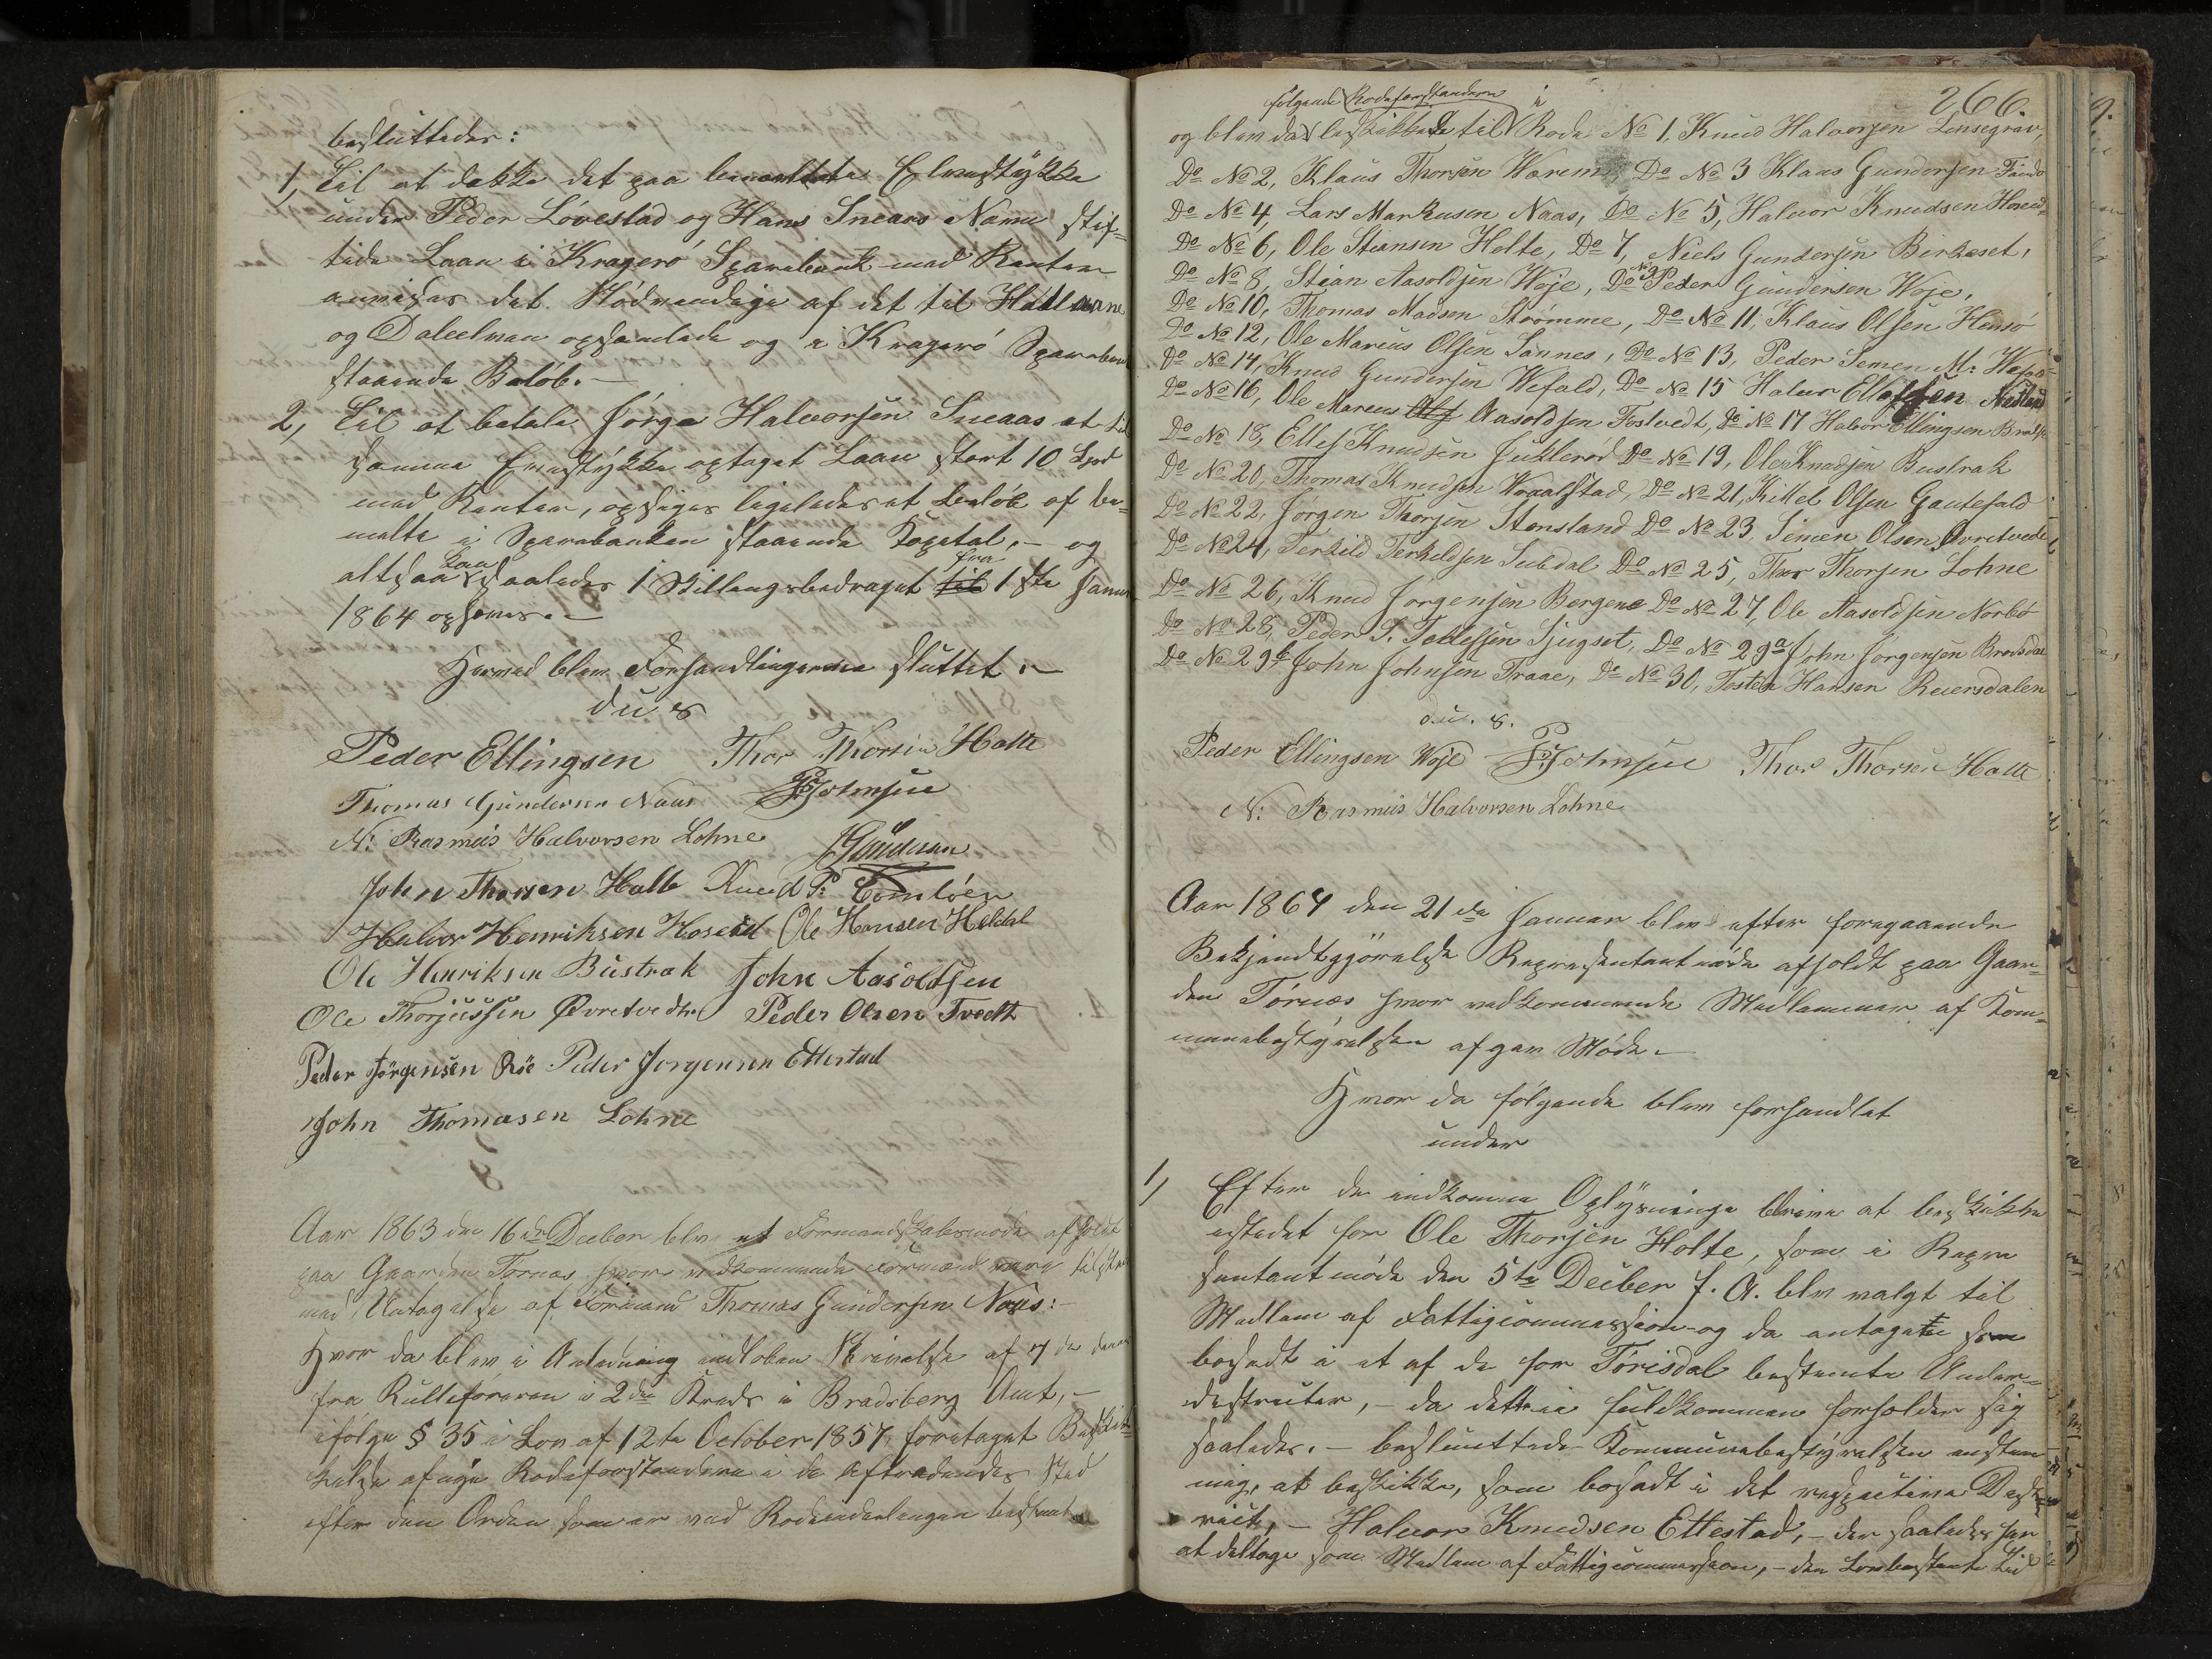 besluttedes:
1, Til at dekke det paa bemeldte Elvestykke
under Peder Lövestad og Hans Sneaas Navne stif-
tede Laan i Kragerö Sparebank med Renter
anvises det Nödvendige af det til
og Daleelven opsamlede og i Kragerö Spareban
staaende Belöb. —
2, Til at betale Jörgen Halvorsen Sneaas et til
samme Elvestykke optaget Laan stort 10 Spd
med Renter, opsiges ligeledes et Belöb af be-
meldte i Sparebanken staaende Kapital, — og
altsaa kan saaledes 1 Skillingsbedraget til fra 1ste Januar
1864 ophæves. —
Hermed blev Forhandlingerne sluttet. —
D. u. s
Peder Ellingsen Thor Thorsen Halte
Thomas Gundersen Naas PJohnsen
N: Rasmus Halvorsen Lohne Gundersen
John Thorsen Halte Knud P. Tomlöen
Halvor Henriksen Hoseid Ole Hansen Heldal
Ole Henriksen Bustrak John Aasoldsen
Ole Thorjussen Øvretvedt Peder Olsen Tvedt
Peder Jörgensen Röe Peder Jorgensen Ettestad
John Thomasen Lohne
Aar 1863 den 16de Deeber blev et Formandskabsmöde afholdt
paa Gaarden Törnes hvor vedkommende Formænd vare tilstæde
med Untagelse af Formand Thomas Gundersen Naas: —
Hvor da blev i Anledning indloben Skrivelse af 7de dennes
fra Rulleföreren i 2den Kreds i Bradsberg Amt, —
ifölge § 35 i Lov af 12te October 1857, foretaget Beskik-
kelse af nye Rodeforstandere i de Aftrædendes Sted
efter den Orden som er ved Rodeinddelingen bestemt
266.
fölgende Rodeforstandere i
og blev da beskikkede til Rode No 1, Knud Halvorsen Lensegrav,
Do No 2, Klaus Thorsen Wærem, Do No 3 Klaus Gundersen
Do No 4, Lars Markusen Naas, Do No 5, Halvor Knudsen Hoseid
Do No 6, Ole Stiansen Holte, Do 7, Niels Gundersen Birkeset,
Do No 8, Stian Aasoldsen Woje, Do No 9 Peder Gundersen Woje,
Do No 10, Thomas Madsen Strömme, Do No 11, Klaus Olsen Hensö
Do No 12, Ole Marcus Olsen Sannes, Do No 13, Peder Semen M:
Do No 14, Knud Gundersen Wefald, Do No 15 Halvor Ellefsen
Do No 16, Ole Marcus Aasoldsen Tostvedt, Do No 17 Halvor Ellingsen
Do No 18, Ellef Knudsen Juklerød Do No 19, Ole Knudsen Bustrak
Do No 20, Thomas Knudsen Wraalstad, Do No 21, Kittel Olsen Gautefald
Do No 22, Jörgen Thorsen Stensland Do No 23, Simen Olsen Øvretvedt
Do No 24, Terkild Terkeldsen Subdal Do No 25, Thor Thorsen Lohne
Do No 26, Knud Jorgensen Bergene Do No 27, Ole Aasoldsen Norbö
Do No 28, Peder S. Tollefsen Sjugset, Do No 29a John Jorgensen Brødsdal
Do No 29b John Johnsen Traae, Do No 30, Tosten Hansen Reiersdalen
D. u. s.
Peder Ellingsen Woje PJohnsen Thor Thorsen Halte
N: Rasmus Halvorsen Lohne
Aar 1864 den 21de Januar blev efter foregaaende
Bekjendtgjörelse Representantmöde afholdt paa Gaar-
den Törnes hvor vedkommende Medlemmer af Kom-
munebestyrelsen afgav Möde. —
Hvor da fölgende blev forhandlet
under
1, Efter de indkomne Oplysninge blive at beskikke
istedet for Ole Thorsen Holte, som i Repre
sentantmöde den 5te Deeber f. A. blev valgt til
Medlem af Fattigcommission og da antaget som
bosadt i et af de for Törisdal bestemte Under-
districter, — da dette ei fuldkommen forholder sig
saaledes. — besluttede Kommunebestyrelsen enstem
mig, at beskikke, som bosadt i det respective Dist-
rict, — Halvor Knudsen Ettestad, — der saaledes har
at deltage som Medlem af Fattigcommission, — den Lovbestemte Tid